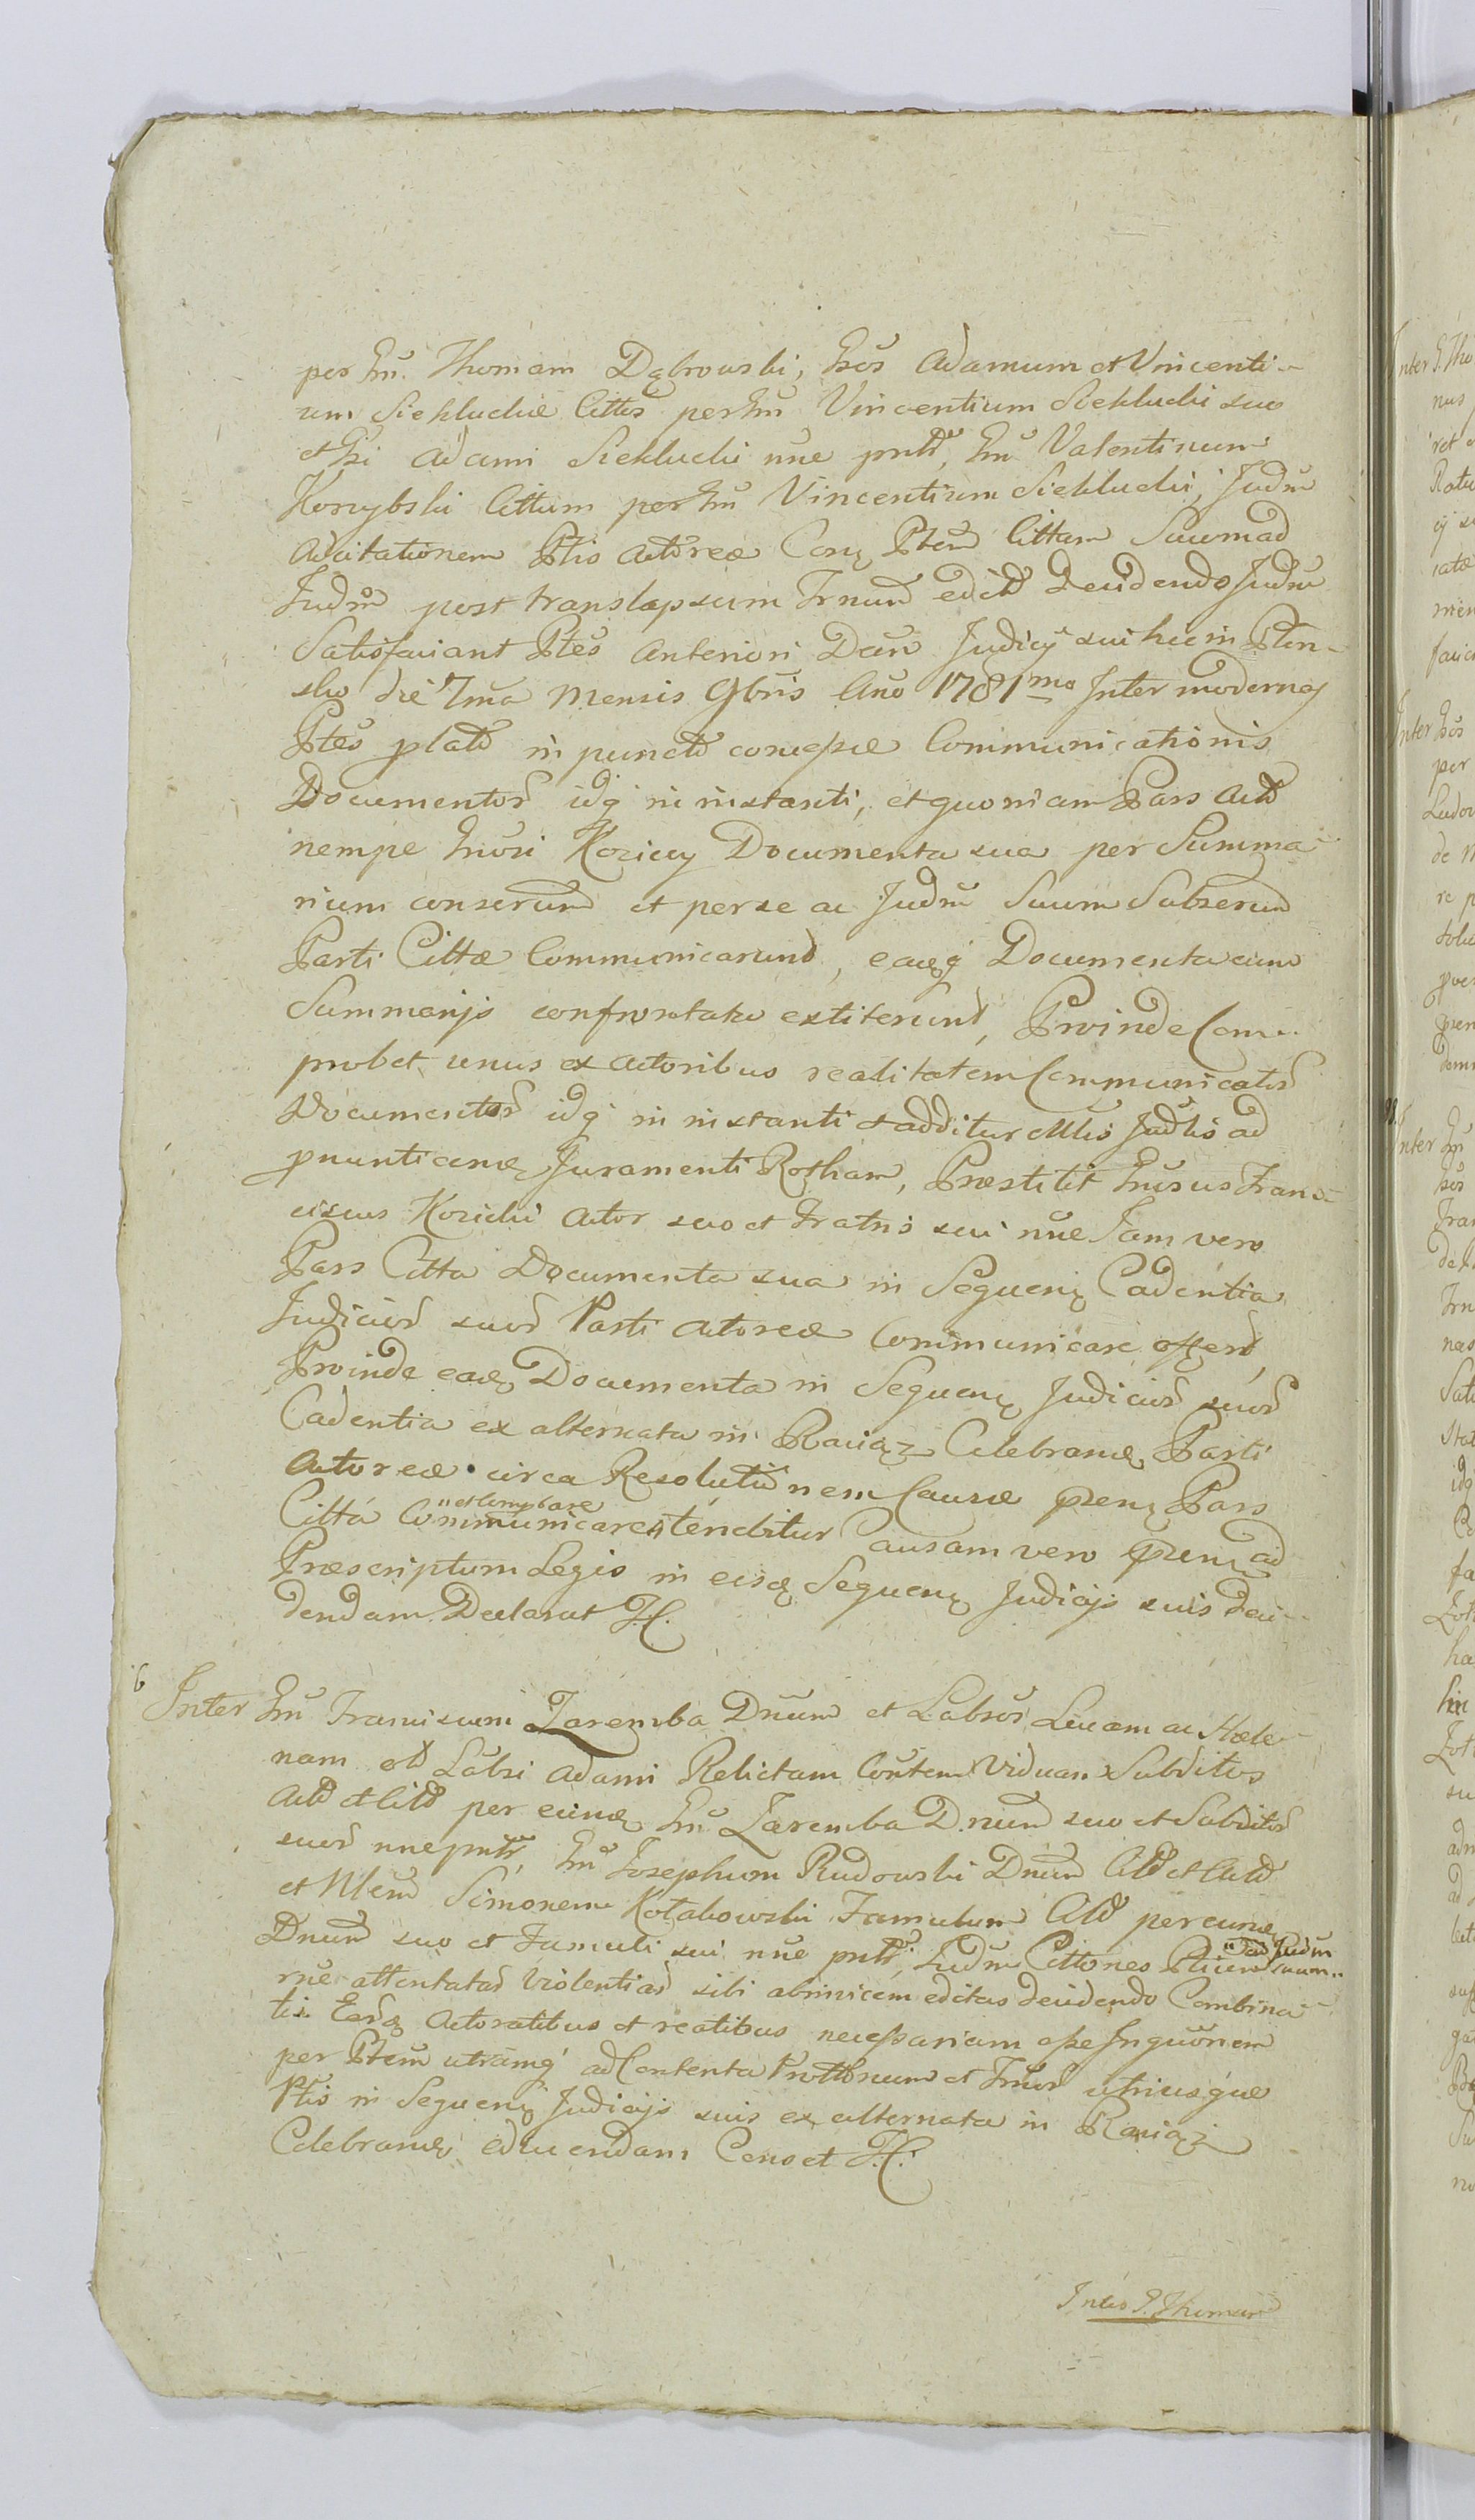 per Gnu. Thomam Dąbrowski, Gsos Adamum et Vincenti-
um Siekluckie Cittos per Gnu Vincentium Sieklucki suo
et Gsi Adami Sieklucki nne pntt, Gnu Valentinum
Korzybski Cittum per Gnu Vincentium Sieklucki, Judm
Ad citationem Ptis Actoreæ Conq Ptem Cittam Suum ad
Judm post translapsum Trnum edit decidendo Judm
Satisfaciant Ptes Anteriori Decr Judicij sui hic in Płon-
sko die 7ma Mensis 9bris Ano 1781mo Inter modernas
Ptes plato in puncto concessæ Communicationis
Documentor idq in instanti, et quoniam Pars Act
nempe Gnosi Koziccy Documenta sua per Summa-
rium conserund et per se ac Judm Suum Subserund
Parti Cittæ Communicarund, eaq Documenta cum
Summarijs confrontata extiterund, Proinde Com-
probet unus ex Actoribus realitatem Communicator
Documentor idq in instanti et additur Mtis Judlis ad
pnunticanq Juramenti Rotham, Præstitit Gnusus Fran-
ciscus Kozicki Actor suo et Fratris sui nne Jam vero
Pars Citta Documenta sua in Sequenq Cadentia
Judicior suor Parti Actoreæ Communicare offert,
Proinde eaq Documenta in Sequenq Judicior suor
Cadentia ex alternata in Raciąz Celebranq Parti
Actoreæ circa Resolutionem Causæ præn Pars
Citta Communicare et Comprobare tenebitur Causam vero præn ad
Præscriptum Legis in eisq Sequenq Judicijs suis deci-
dendam Declarat J.H.
6 Inter Gnu Franciscum Zaremba Dnum et Labsos Lucam ac Hele-
nam olt Labsi Adami Relictam Contem Viduam Subditos
Act et Citt per eunq Gnu Zaremba Dnum suo et Subditor
suor nne pntt, Gnu Josephum Rudowski Dnum Citt et Act
et Nlem Simonem Kołakowski Famulum Citt per eunq
Dnum suo et Famuli sui nne pntt, Judm Cittones Pticem ad Judm suum
rne attentatar Violentiar sibi abinvicem editas decidendo Combina-
tis Eorq Actoratibus et reatibus necessariam esse Inquonem
per Ptem utramq ad Contenta Prottonum et Trnor utriusque
Ptis in Sequenq Judicijs suis ex alternata in Raciąz
Celebranq educendam Censet J.H.
Inter G. Thomam